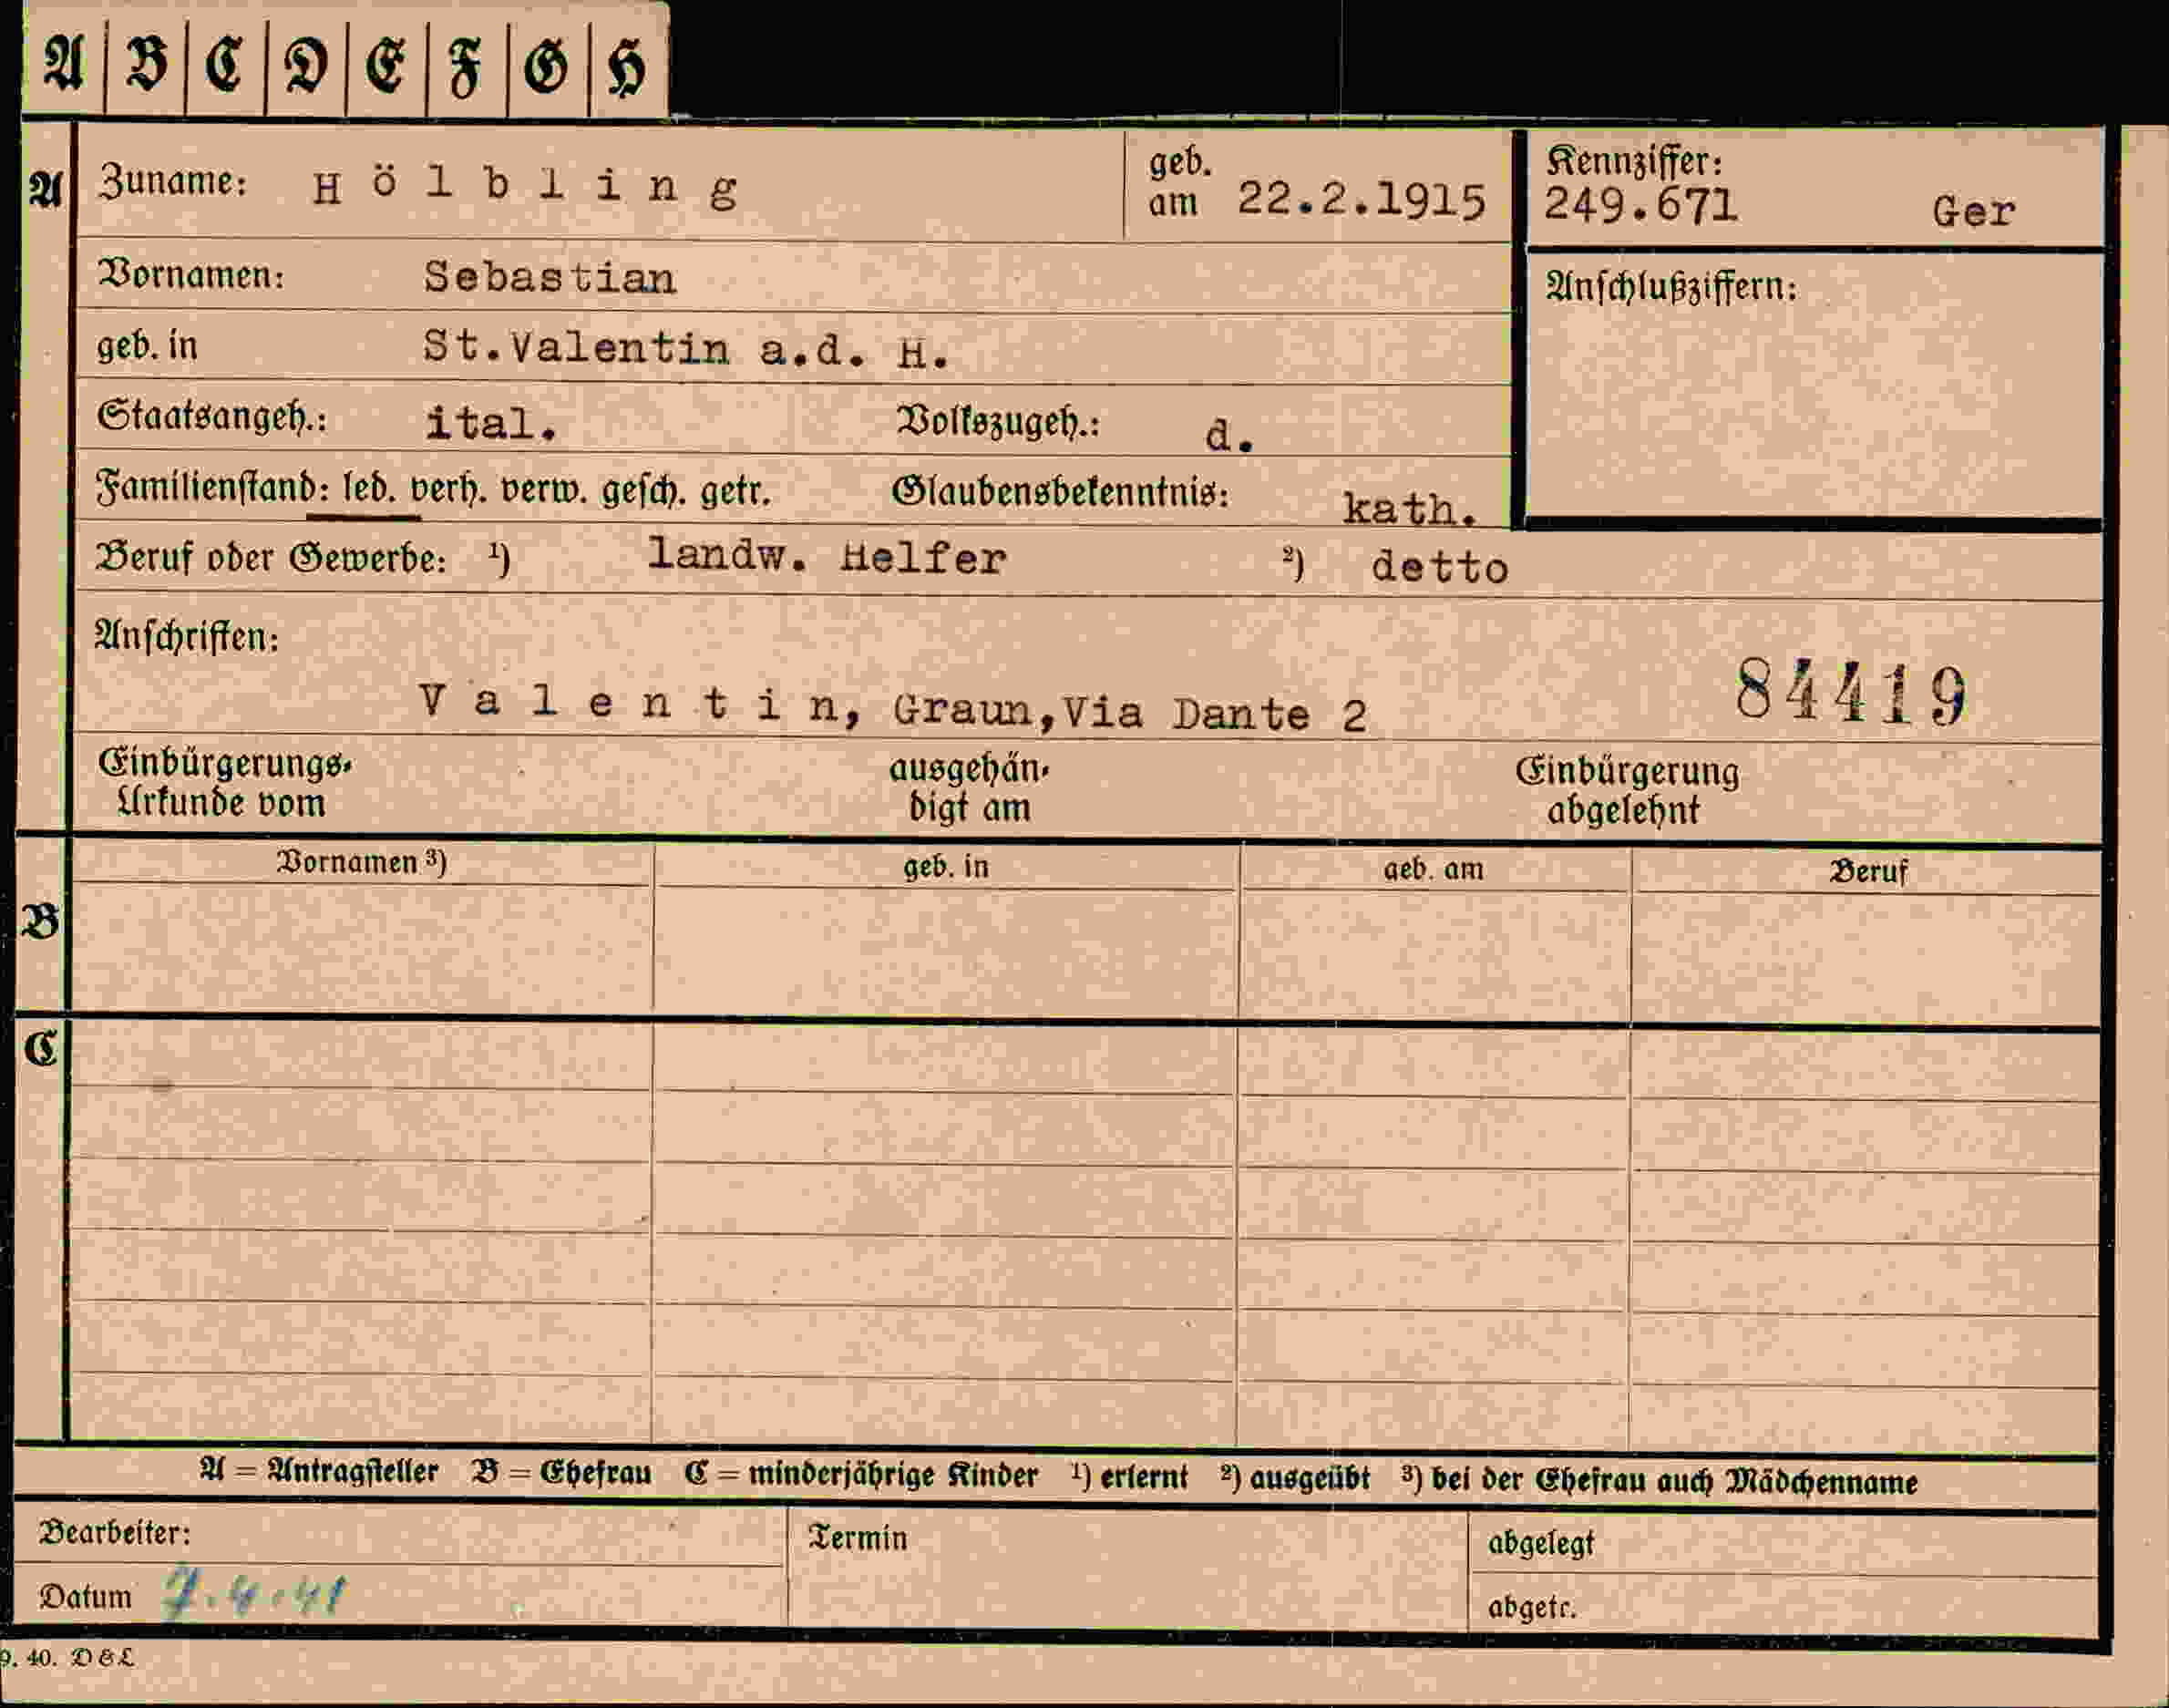 A B C D E F G H
A Zuname: Hölbling geb. am 22.2.1915 Kennziffer: 249.671 Ger
Vornamen: Sebastian Anschlußziffern:
geb. in St.Valentin a.d. H.
Staatsangeh.: ital. Volkszugeh.: d.
Familienstand: led. verh. verw. gesch. getr. Glaubensbekenntnis: kath.
Beruf oder Gewerbe: ¹) landw. Helfer ²) detto
Anschriften:
84419
Valentin, Graun, Via Dante 2
Einbürgerungs- ausgehän- Einbürgerung
Urkunde vom digt am abgelehnt
Vornamen ³) geb. in geb. am Beruf
B
C
A = Antragsteller B = Ehefrau C = minderjährige Kinder ¹) erlernt ²) ausgeübt ³) bei der Ehefrau auch Mädchenname
Bearbeiter: Termin abgelegt
Datum 7.4.41 abgetr.
9. 40. D & L